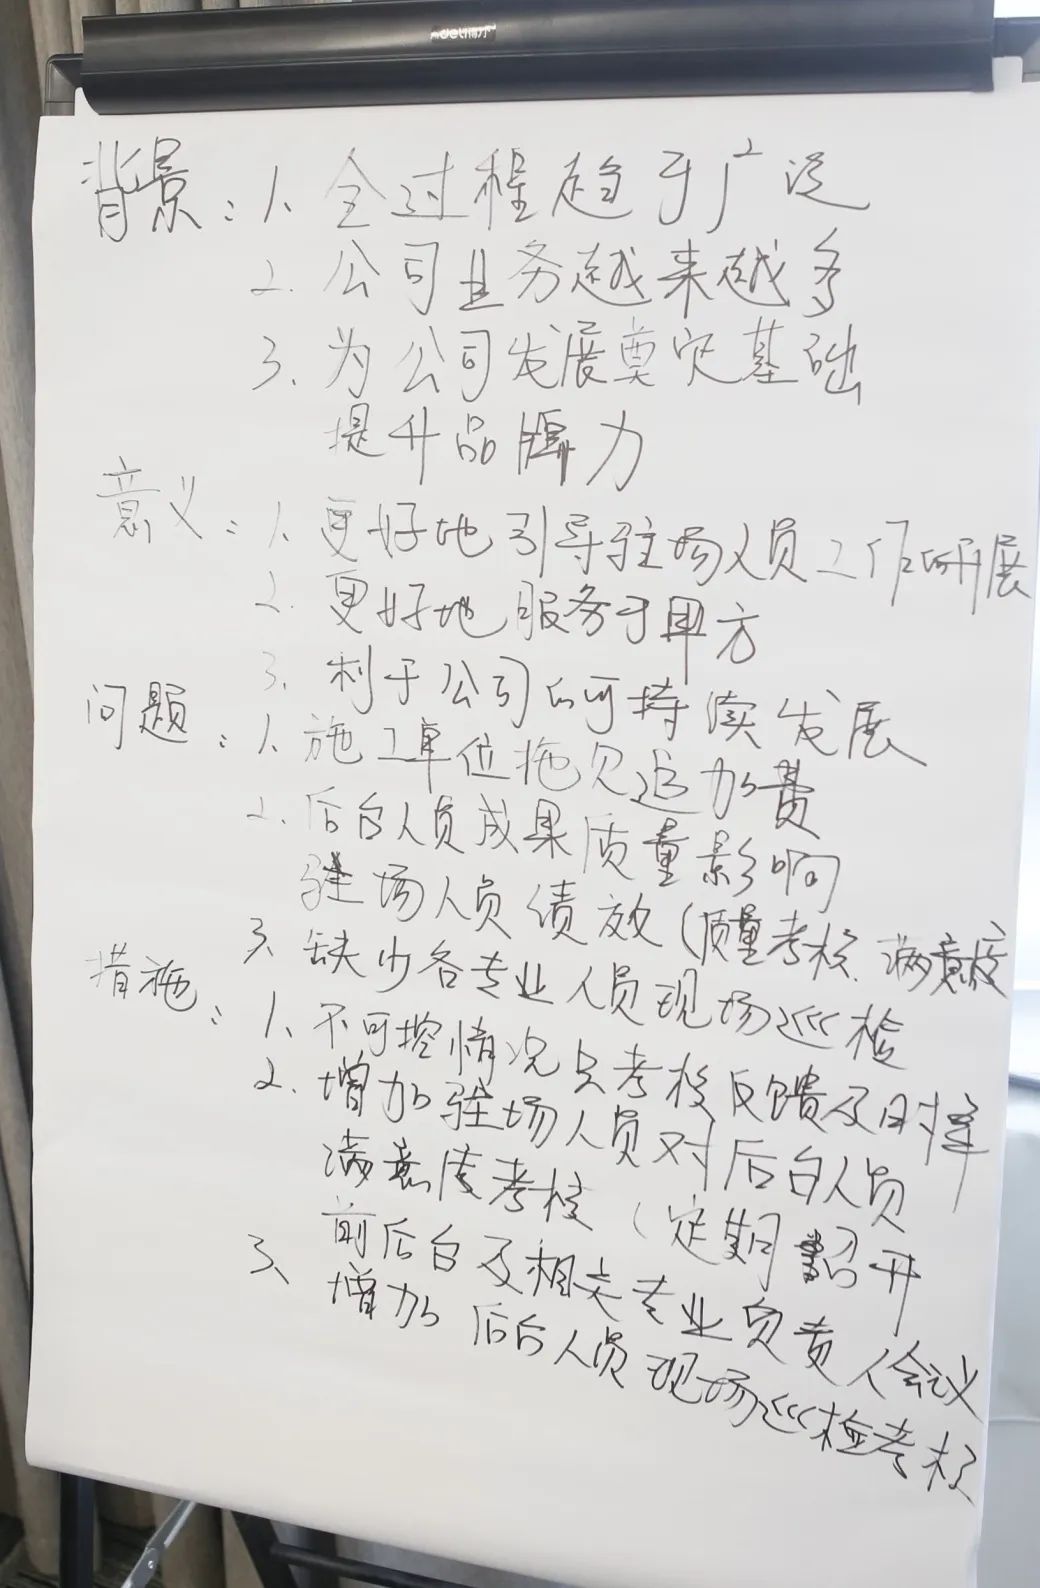 deli得力
背景：1、全过程趋于广泛
2. 公司业务越来越多
3、为公司发展奠定基础
提升品牌力
意义：1、更好地引导驻场人员工作的开展
2. 更好地服务于甲方
3. 利于公司的可持续发展
问题：1、施工单位拖欠追加费
2. 后台人员成果质量影响
驻场人员绩效（质量考核、满意度
3、缺少各专业人员现场巡检
措施：1、不可控情况只考核反馈及时率
2. 增加驻场人员对后台人员
满意度考核（定期召开
前后台及相关专业负责人会议
3、增加后台人员现场巡检考核